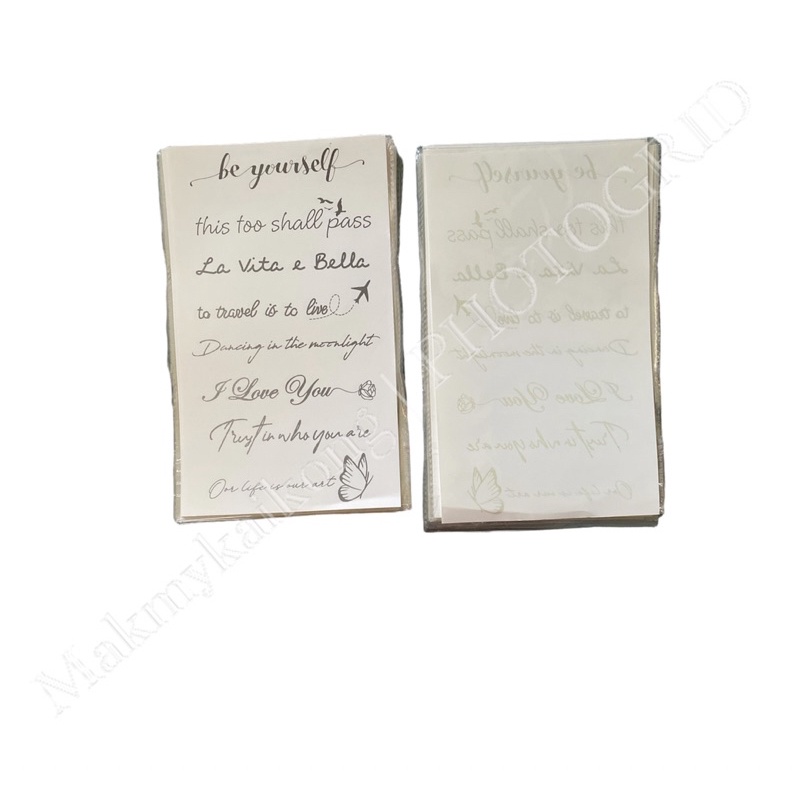 be yourself
this too shall pass
La Vita e Bella
to travel is to live
Dancing in the moonlight
I Love You
Trust in who you are
Our life is our art
be yourself
this too shall pass
La Vita e Bella
to travel is to live
Dancing in the moonlight
I Love You
Trust in who you are
Our life is our art
Makmykaikong | PHOTOGRID